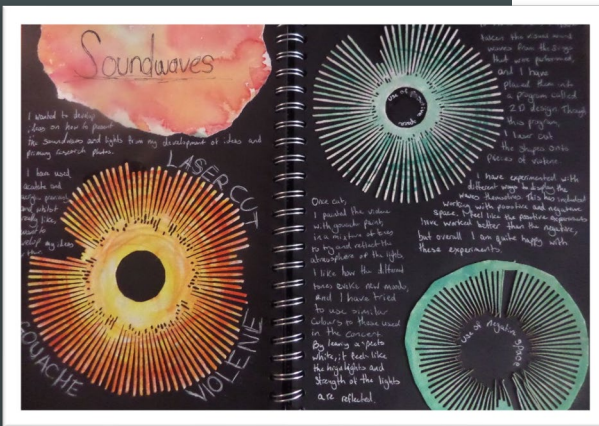 Soundwaves
I wanted to develop
ideas on how to present
the soundwaves and lights from my development of ideas and
primary research photos.
I have used
and
LASER CUT
GOUACHE
VIOLENE
Once cut,
I painted the violene
with gouache paints
in a mixture of tones
to try and reflect the
atmosphere of the lights.
I like how the different
tones evoke new moods,
and I have tried
to use similar
colours to those used
in the concert.
By leaving aspects
white, it feels like
the highlights and
strength of the lights
are reflected.
use of positive space
taken the sound
waves from the songs
that were performed,
and I have
placed them into
a program called
2D design. Through
this program,
I laser cut
the shapes onto
pieces of violene.
I have experimented with
different ways to display the
waves themselves. This has included
working with positive and negative
space. I feel like the positive experiments
have worked better than the negative,
but overall I am quite happy with
these experiments.
use of negative space